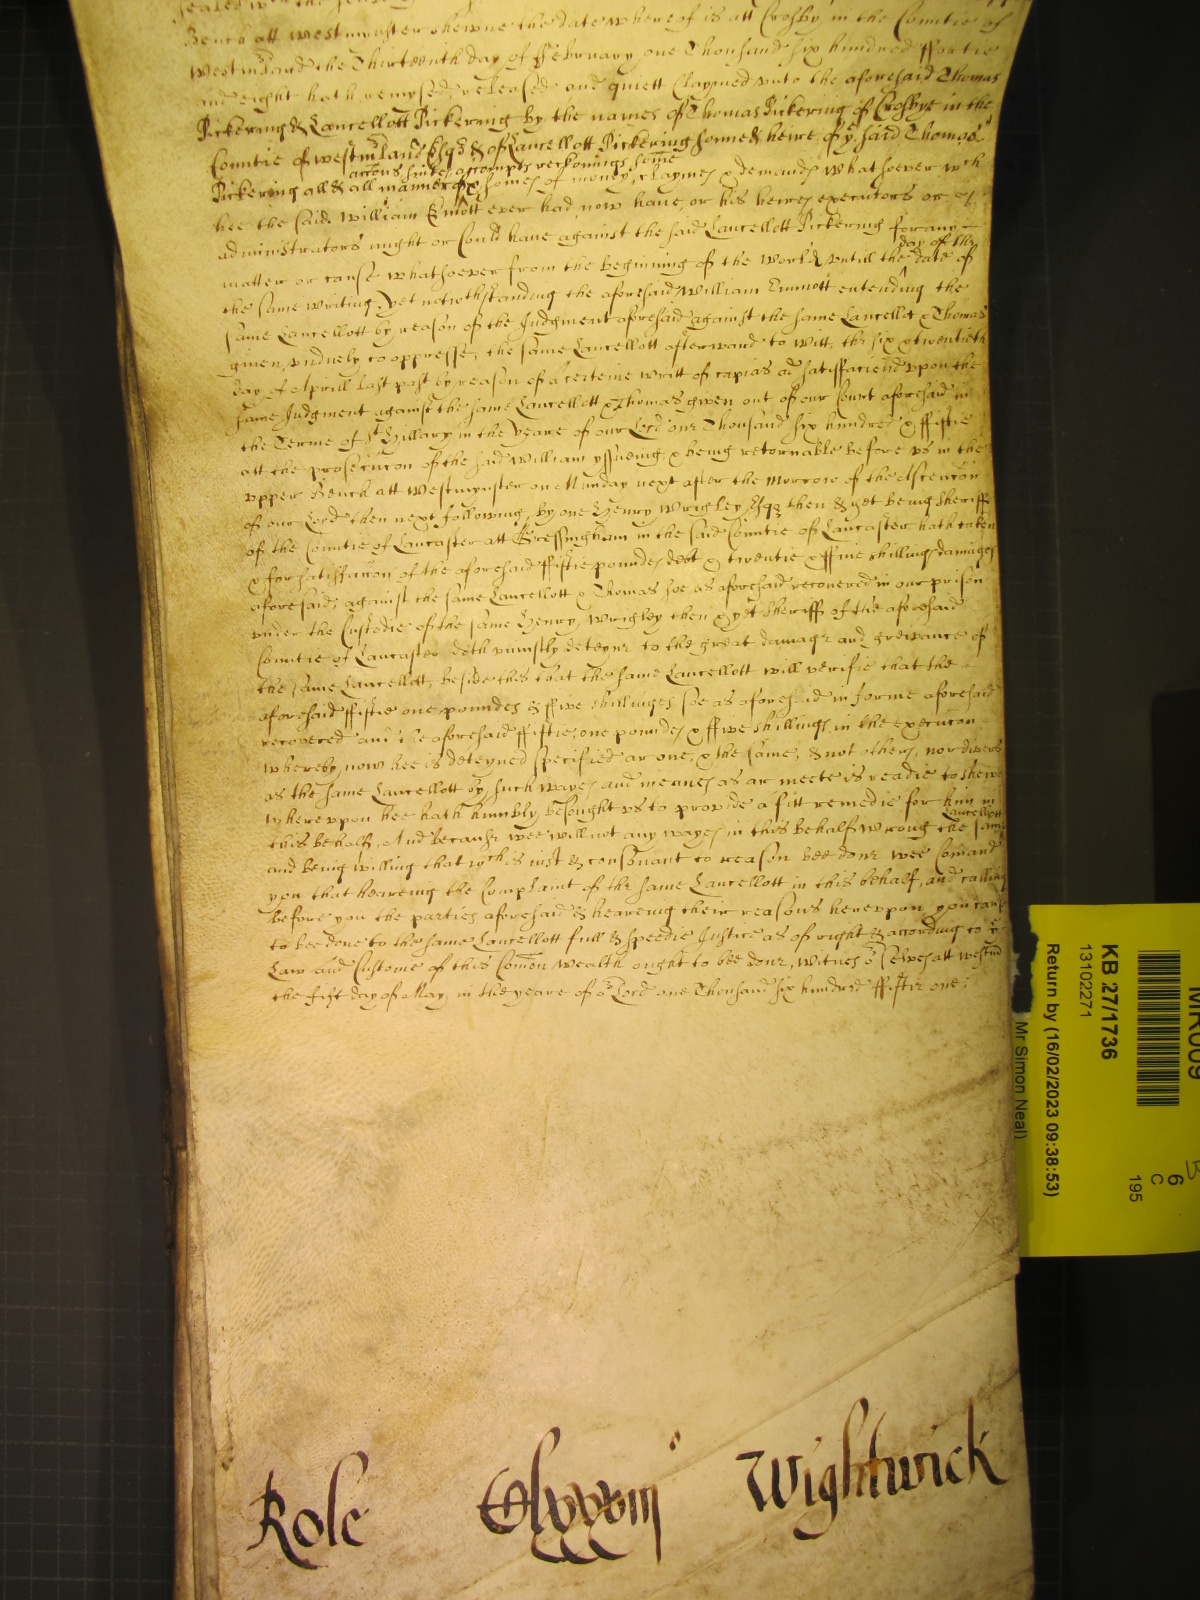 sealed wth the
Bench att westmynster shewne the date whereof is att Crosby in the Countie of
westmland the Thirteenth day of February one Thousand six hundred ffortie
and eight hath remysed released and quiett claymed unto the aforesaid Thomas
Pickering & Lancellott Pickering by the names of Thomas Pickering of Crosbye in the
Countie of westmland Esqr & of Lancellott Pickering sonne & heire of ye said Thomas
accons suites accompts reckonings
Pickering all & all manner of somes of money claymes & demands whatsoever wch
hee the said William Emott ever had now have or his heires executors or
administrators might or could have against the said Lancellott Pickering for any
day of the
matter or cause whatsoever from the begining of the world untill the date of
the same writing yet notwthstanding the aforesaid William Emmott entending the
same Lancellott by reason of the Judgment aforesaid against the same Lancellot & Thomas
given unduely to oppresse the same Lancellott afterward to witt the six & twentieth
day of Aprill last past by reason of a certeine writt of capias ad satisfaciend upon the
same Judgment against the same Lancellott & Thomas given out of our Court aforesaid in
the Terme of St Hillary in the yeare of our Lord one Thousand six hundred & ffiftie
att the prosecucon of the said William yssueing & being retornable before us in the
upper Bench att Westmynster on Munday next after the Morrow of the Ascencon
of our Lord then next following by one Henry Wrigley Esqr then & yet being Sheriff
of the Countie of Lancaster att Gressingham in the said Countie of Lancaster hath taken
& for satisfaccon of the aforesaid ffiftie poundes debt & twentie & ffive shillings damages
aforesaid against the same Lancellott & Thomas soe as aforesaid recovered in our prison
under the Custodie of the same Henry Wrigley then & yet Sheriff of the aforesaid
Countie of Lancaster doth uniustly deteyne to the great damage and greivance of
the same Lancellott, beside this that the same Lancellott will verifie that the
aforesaid ffiftie one poundes & ffive shillinges soe as aforesaid in forme aforesaid
recovered and the aforesaid ffiftie one poundes & ffive shillings in the execucon
whereby now hee is deteyned specified are one & the same, & not others, nor divers
as the same Lancellott by such wayes and meanes as are meete is readie to shewe
whereupon hee hath humbly besought us to provide a fitt remedie for him in
Lancellott
this behalf, And because wee will not any wayes in this behalf wrong the same
and being willing that wch is iust & consonant to reason bee done wee Comand
you that heareing the Complaint of the same Lancellott in this behalf, and calling
before you the parties aforesaid & heareing their reasons hereupon you cause
to bee done to the same Lancellott full & speedie Justice as of right & according to ye
Law and Custome of this Comon wealth ought to bee done, witnes or selves att westm
the first day of May, in the yeare of or Lord one Thousand six hundred ffiftie one.
Role Clxxxiij Wightwick
KB 27/1736
13102271
Return by (16/02/2023 09:38:53)
Mr Simon Neal)
6
C
195